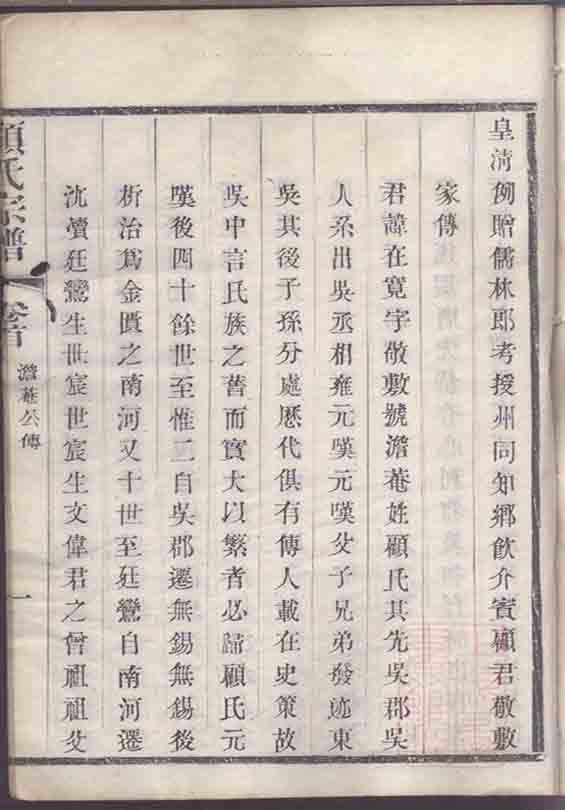 皇淸例贈儒林郎考授州同知鄉飲介賓顧君敬敷
家傳
君諱在寬字敬敷號澹菴姓顧氏其先吳郡吳
人系出吳丞相雍元嘆元嘆父子兄弟發迹東
吳其後子孫分處歷代俱有傳人載在史策故
吳中言氏族之舊而實大以繁者必歸顧氏元
嘆後四十餘世至惟二自吳郡遷無錫無錫後
析治爲金匱之南河又十世至廷鸞自南河遷
沈瀆廷鸞生世宸世宸生文偉君之曾祖祖父
顧氏宗譜
卷首
澹菴公傳
一